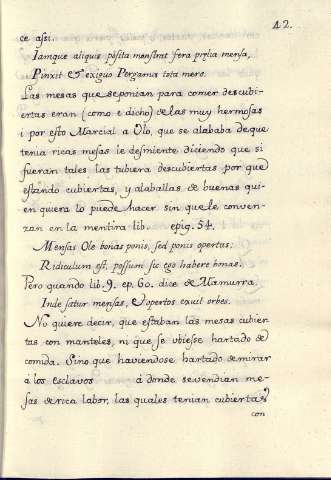 42.
ce assi.
Iamque aliquis posita monstrat fera prælia mensa,
Pinxit et exiguo Pergama tota mero.
Las mesas que se ponian para comer descubi-
ertas eran (como e dicho) de las muy hermosas
i por esto Marcial a Olo, que se alababa de que
tenia ricas mesas le desmiente diciendo que si
fueran tales las tubiera descubiertas por que
estando cubiertas, y alaballas de buenas qui-
en quiera lo puede hacer sin que le conven-
zan en la mentira lib. epig. 54.
Mensas Ole bonas ponis, sed ponis opertas;
Ridiculum est, possum sic ego habere bonas.
Pero quando lib. 9. ep. 60. dice de Mamurra.
Inde satur mensas, et opertos exuit orbes.
No quiere decir, que estaban las mesas cubier
tas con manteles, ni que se vbiese hartado de
comida. Sino que haviendose hartado de mirar
á los esclavos á donde se vendian me-
sas de rica labor, las quales tenian cubiertas
con